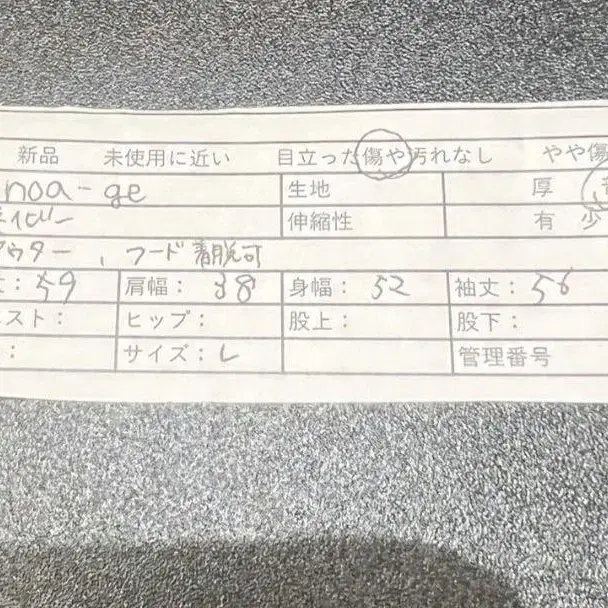 新品 未使用に近い 目立った傷や汚れなし やや傷
noa-ge 生地 厚
伸縮性 有 少
アウター、フード着脱可
丈: 59 肩幅: 38 身幅: 52 袖丈: 56
エスト: ヒップ: 股上: 股下:
: サイズ: L 管理番号